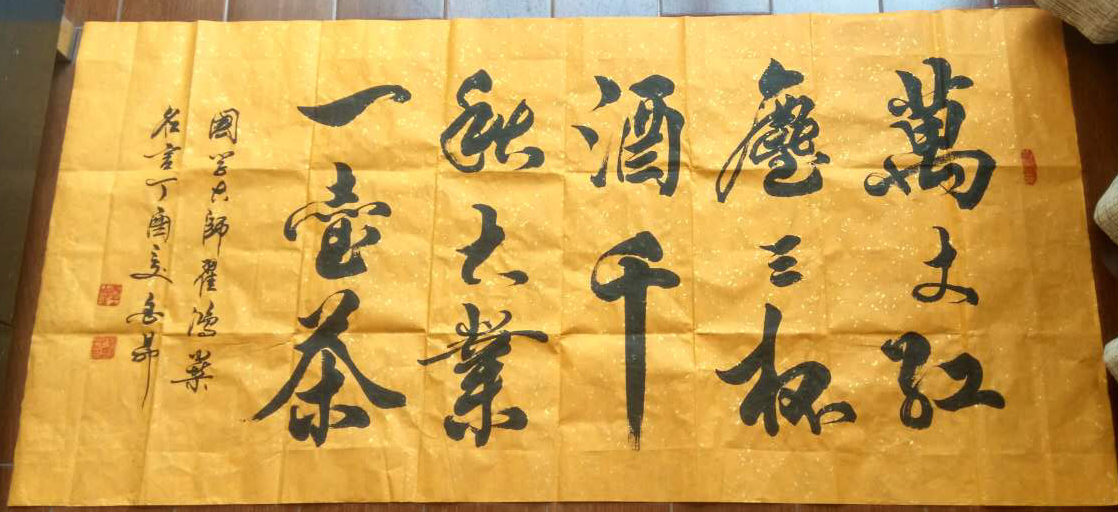 萬丈紅
塵三杯
酒千
秋大業
一壺茶
國學大師翟鴻業
名言丁酉夏